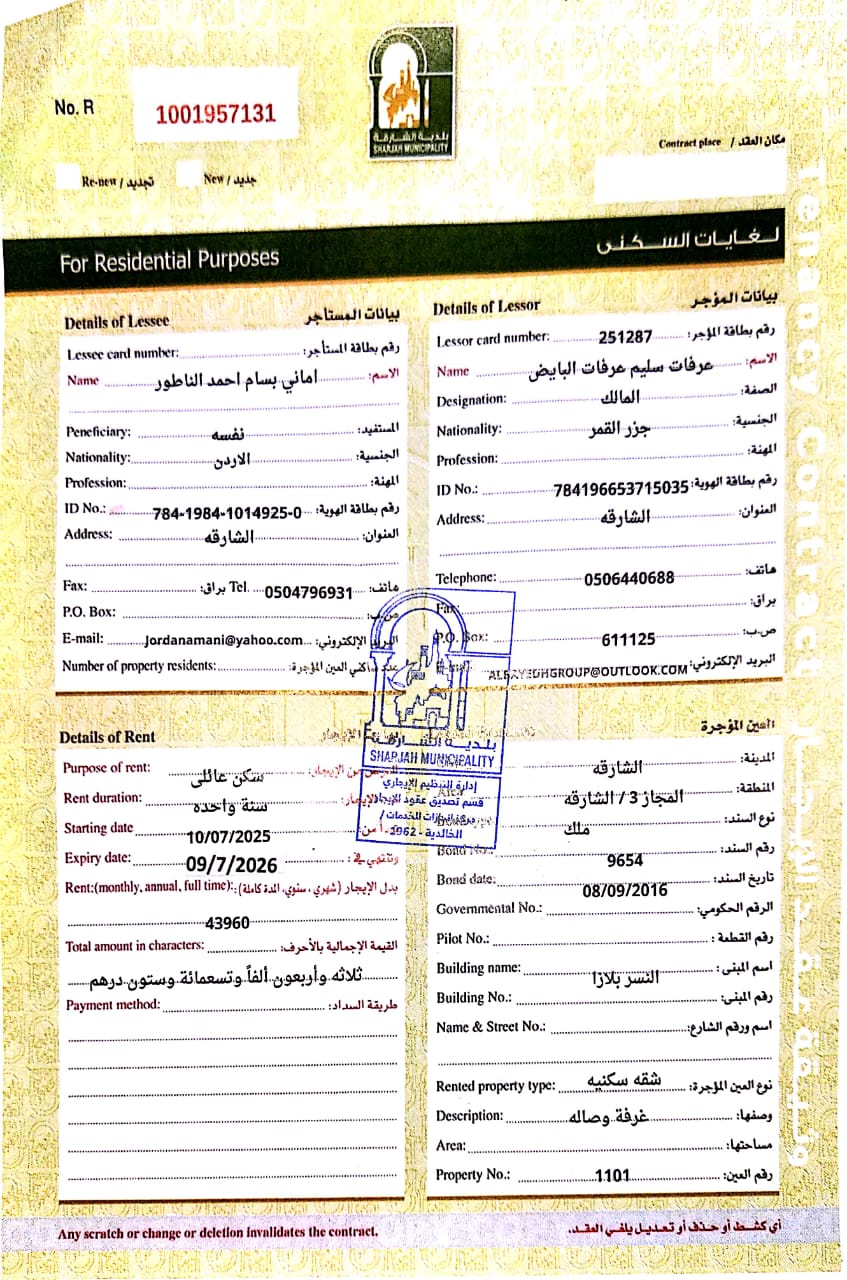 No. R 1001957131
بلدية الشارقة
SHARJAH MUNICIPALITY
Contract place / مكان العقد
Re-new / تجديد New / جديد
For Residential Purposes لغايات السكنى
Tenancy Contract
Details of Lessee بيانات المستأجر
Lessee card number: رقم بطاقة المستأجر:
Name اماني بسام احمد الناطور الاسم:
Peneficiary: نفسه المستفيد:
Nationality: الاردن الجنسية:
Profession: المهنة:
ID No.: 784-1984-1014925-0 رقم بطاقة الهوية:
Address: الشارقه العنوان:
Fax: براق: Tel. 0504796931 هاتف:
P.O. Box: ص.ب:
E-mail: Jordanamani@yahoo.com البريد الإلكتروني:
Number of property residents: عدد ساكني العين المؤجرة:
Details of Lessor بيانات المؤجر
Lessor card number: 251287 رقم بطاقة المؤجر:
Name عرفات سليم عرفات البايض الاسم:
Designation: المالك الصفة:
Nationality: جزر القمر الجنسية:
Profession: المهنة:
ID No.: 784196653715035 رقم بطاقة الهوية:
Address: الشارقه العنوان:
Telephone: 0506440688 هاتف:
Fax: براق:
P.O. Box: 611125 ص.ب:
ALBAYEDHGROUP@OUTLOOK.COM البريد الإلكتروني:
بلدية الشارقة
SHARJAH MUNICIPALITY
إدارة التنظيم الإيجاري
قسم تصديق عقود الإيجار
الخالدية - 2962
Details of Rent
Purpose of rent: سكن عائلى الغرض من الإيجار:
Rent duration: سنة واحده الإيجار:
Starting date 10/07/2025
Expiry date: 09/7/2026 وتنتهي في:
Rent:(monthly, annual, full time): بدل الإيجار (شهري، سنوي، المدة كاملة):
43960
Total amount in characters: القيمة الإجمالية بالأحرف:
ثلاثه وأربعون ألفاً وتسعمائة وستون درهم
Payment method: طريقة السداد:
العين المؤجرة
الشارقه المدينة:
المجاز 3 / الشارقه المنطقة:
ملك نوع السند:
Bond No.: 9654 رقم السند:
Bond date: 08/09/2016 تاريخ السند:
Governmental No.: الرقم الحكومي:
Pilot No.: رقم القطعة:
Building name: النسر بلازا اسم المبنى:
Building No.: رقم المبنى:
Name & Street No.: اسم ورقم الشارع:
Rented property type: شقه سكنيه نوع العين المؤجرة:
Description: غرفة وصاله وصفها:
Area: مساحتها:
Property No.: 1101 رقم العين:
Any scratch or change or deletion invalidates the contract. أي كشط أو حذف أو تعديل يلغي العقد.